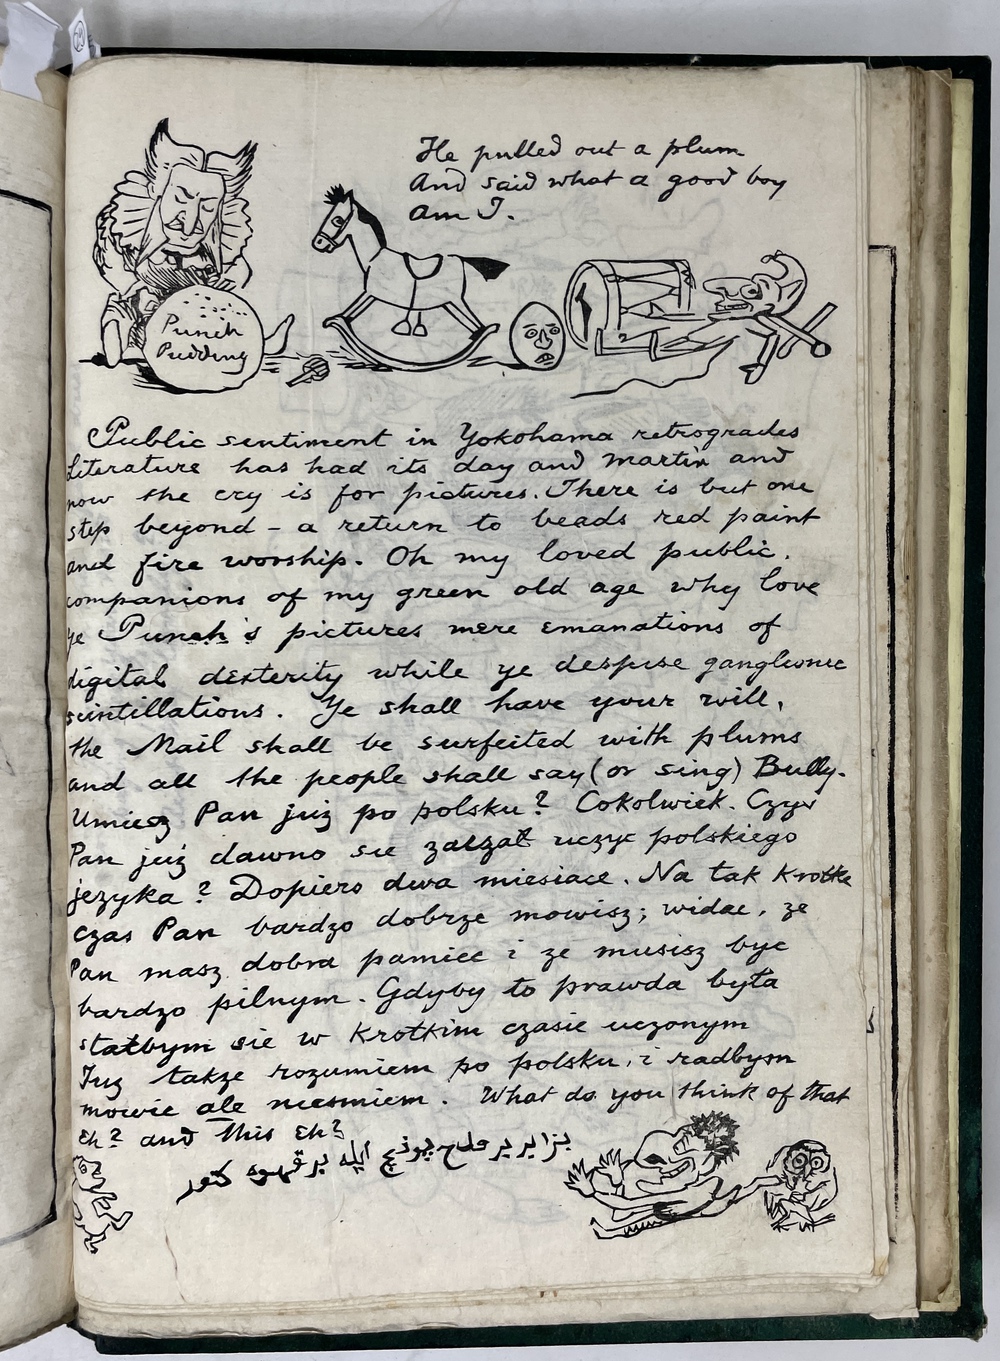 29
He pulled out a plum
And said what a good boy
am I.
Punch
Pudding
Public sentiment in Yokohama retrogrades
literature has had its day and Martin and
now the cry is for pictures. There is but one
step beyond - a return to beads red paint
and fire worship. Oh my loved public,
companions of my green old age why love
ye Punch's pictures mere emanations of
digital dexterity while ye despise ganglionic
scintillations. Ye shall have your will,
the Mail shall be surfeited with plums
and all the people shall say (or sing) Bully.
Umiesz Pan już po polsku? Cokolwiek. Czyż
Pan już dawno sie zaczał uczyc polskiego
jezyka? Dopiero dwa miesiace. Na tak krotke
czas Pan bardzo dobrze mowisz; widac, ze
Pan masz dobra pamiec i ze musisz byc
bardzo pilnym. Gdyby to prawda była
stałbym sie w krotkim czasie uczonym
Juz takze rozumiem po polsku, i radbym
mowie ale niesmiem. What do you think of that
Eh? and This Eh?
پونچ ایله بر قهوه